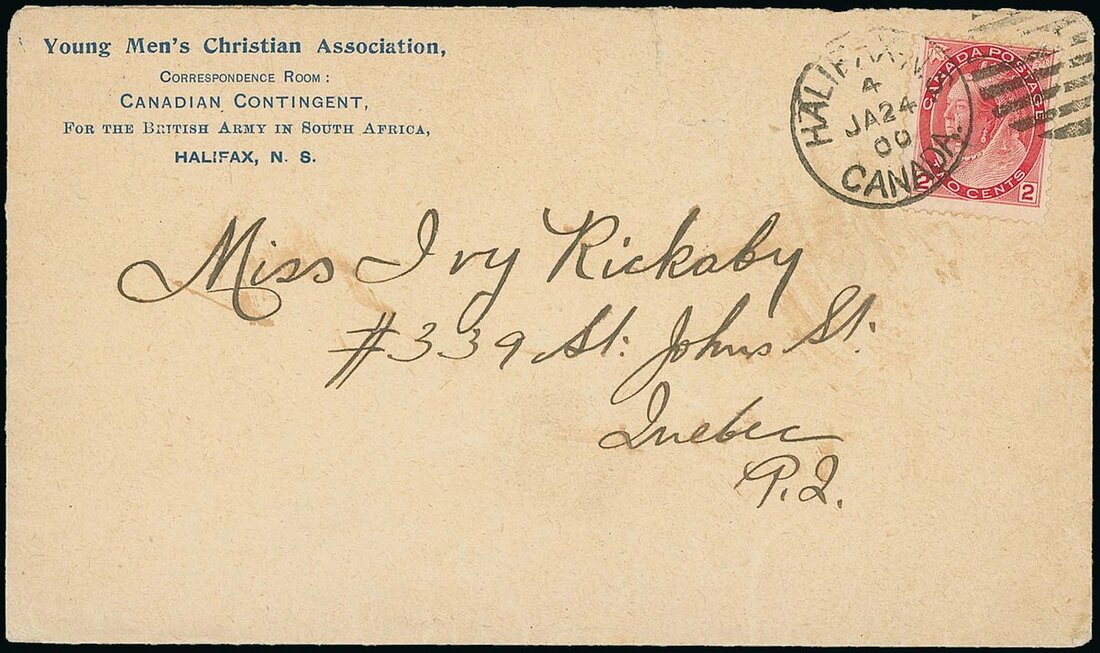 Young Men's Christian Association,
Correspondence Room:
Canadian Contingent,
For the British Army in South Africa,
HALIFAX, N. S.
HALIFAX
4
JA 24
00
CANADA.
CANADA POSTAGE
TWO CENTS
2
2
Miss Ivy Rickaby
#339 St. Johns St.
Quebec
P.Q.